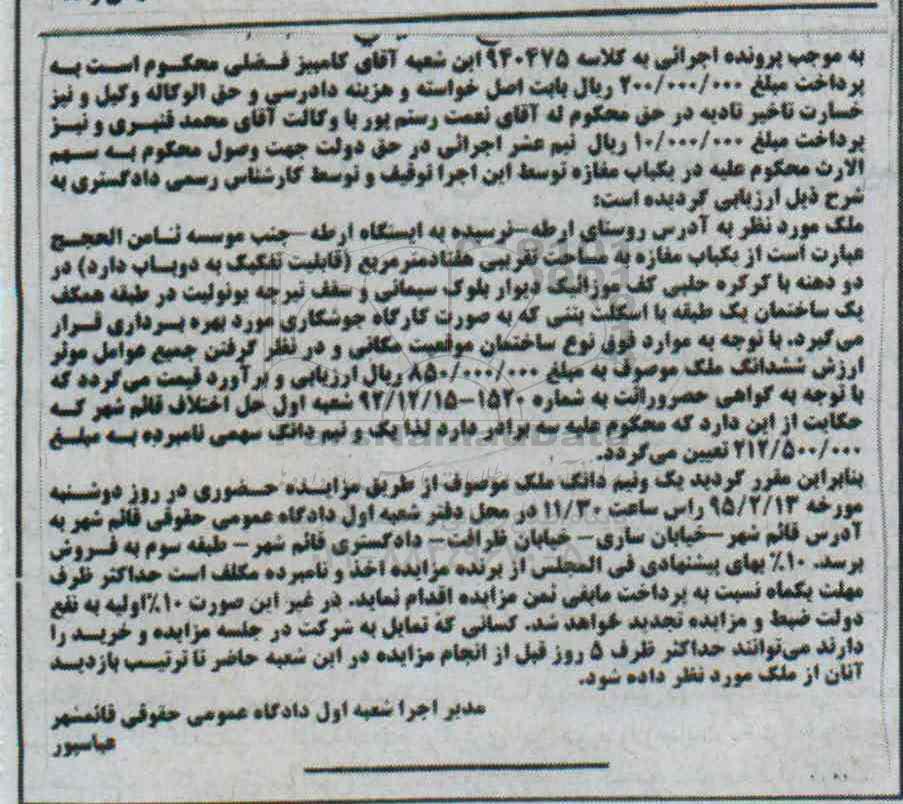 به موجب پرونده اجرائی به کلاسه ۹۴۰۴۷۵ این شعبه آقای کامبیز فضلی محکوم است به
پرداخت مبلغ ۲۰۰/۰۰۰/۰۰۰ ریال بابت اصل خواسته و هزینه دادرسی و حق الوکاله وکیل و نیز
خسارت تاخیر تادیه در حق محکوم له آقای نعمت رستم پور با وکالت آقای محمد قنبری و نیز
پرداخت مبلغ ۱۰/۰۰۰/۰۰۰ ریال نیم عشر اجرائی در حق دولت جهت وصول محکوم به سهم
الارث محکوم علیه در یکباب مغازه توسط این اجرا توقیف و توسط کارشناس رسمی دادگستری به
شرح ذیل ارزیابی گردیده است:
ملک مورد نظر به آدرس روستای ارطه-نرسیده به ایستگاه ارطه -جنب موسسه ثامن الحجج
عبارت است از یکباب مغازه به مساحت تقریبی هفتادمترمربع (قابلیت تفکیک به دوباب دارد) در
دو دهنه با کرکره حلبی کف موزائیک دیوار بلوک سیمانی و سقف تیرچه یونولیت در طبقه همکف
یک ساختمان یک طبقه با اسکلت بتنی که به صورت کارگاه جوشکاری مورد بهره برداری قرار
می‌گیرد. با توجه به موارد فوق نوع ساختمان موقعیت مکانی و در نظر گرفتن جمیع عوامل موثر
ارزش ششدانگ ملک موصوف به مبلغ ۸۵۰/۰۰۰/۰۰۰ ریال ارزیابی و برآورد قیمت می‌گردد که
با توجه به گواهی حصروراثت به شماره ۱۵۲۰-۹۲/۱۲/۱۵ شعبه اول حل اختلاف قائم شهر که
حکایت از این دارد که محکوم علیه سه برادر دارد لذا یک و نیم دانگ سهمی نامبرده به مبلغ
۲۱۲/۵۰۰/۰۰۰ تعیین می‌گردد.
بنابراین مقرر گردید یک ونیم دانگ ملک موصوف از طریق مزایده حضوری در روز دوشنبه
مورخه ۹۵/۲/۱۳ راس ساعت ۱۱/۳۰ در محل دفتر شعبه اول دادگاه عمومی حقوقی قائم شهر به
آدرس قائم شهر -خیابان ساری- خیابان ظرافت- دادگستری قائم شهر- طبقه سوم به فروش
برسد. ۱۰٪ بهای پیشنهادی فی المجلس از برنده مزایده اخذ و نامبرده مکلف است حداکثر ظرف
مهلت یکماه نسبت به پرداخت مابقی ثمن مزایده اقدام نماید. در غیر این صورت ۱۰٪اولیه به نفع
دولت ضبط و مزایده تجدید خواهد شد. کسانی که تمایل به شرکت در جلسه مزایده و خرید را
دارند می‌توانند حداکثر ظرف ۵ روز قبل از انجام مزایده در این شعبه حاضر تا ترتیب بازدید
آنان از ملک مورد نظر داده شود.
مدیر اجرا شعبه اول دادگاه عمومی حقوقی قائمشهر
عباسپور